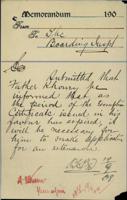 Memorandum 190
From
To The
Boarding Insp
Submitted that
Father Khoury be
informed that as
the period of the Exemption
Certificate issued in his
favour has expired, it
will be necessary for
him to make application
for an extension.